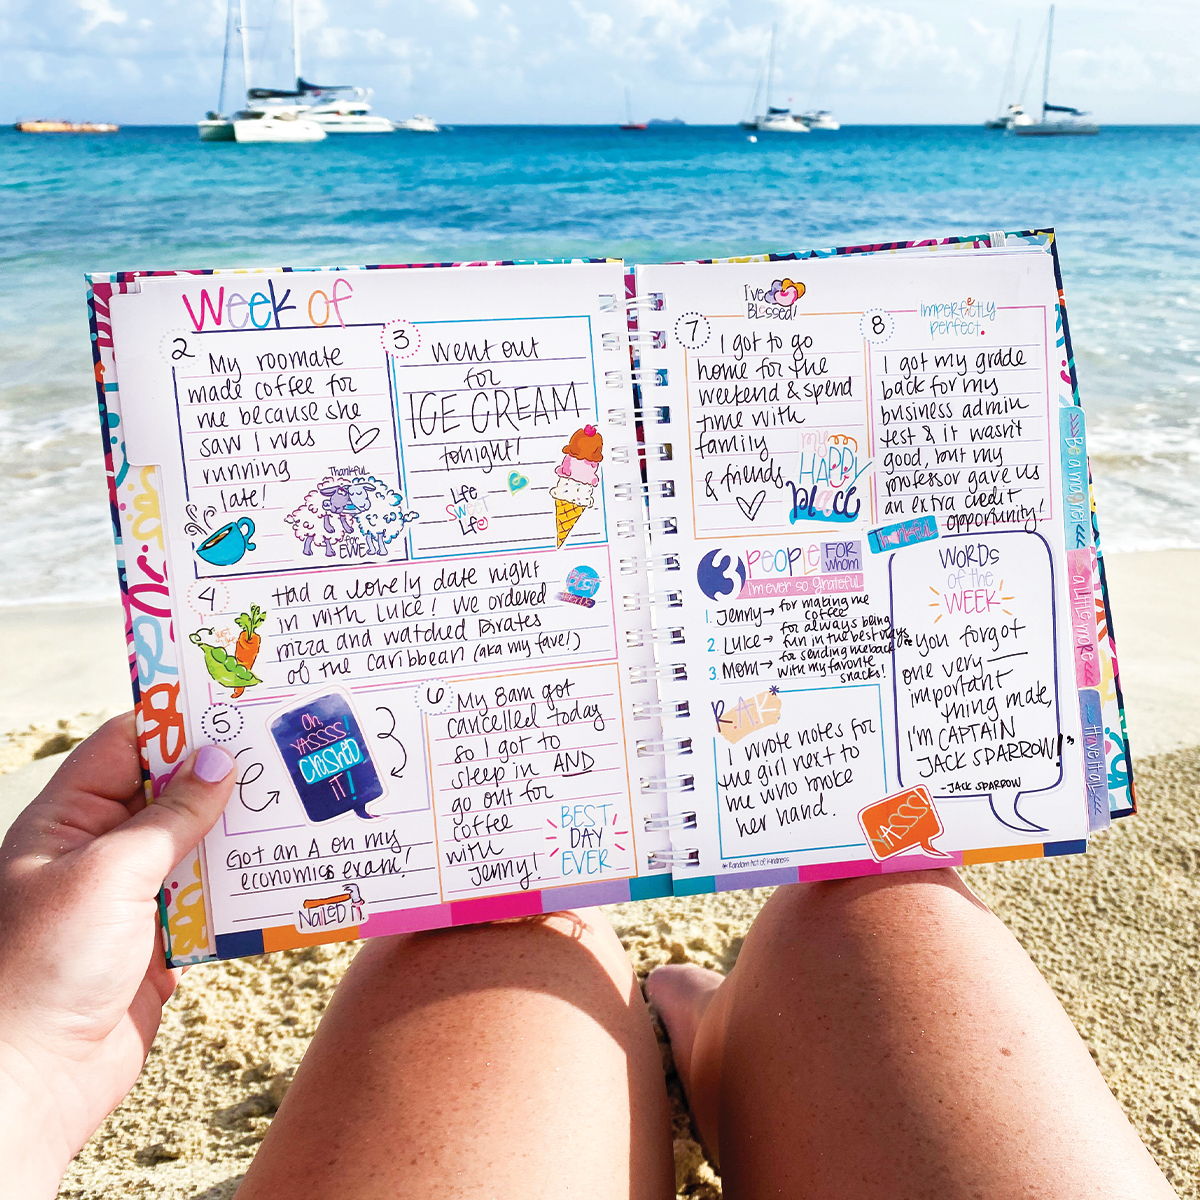 Week of
2
My roommate
made coffee for
me because she
saw I was
running
late!
Thankful
for
EWE
3
Went out
for
ICE CREAM
tonight!
Life
SWEET
Life
4
Had a lovely date night
in with Luke! We ordered
pizza and watched Pirates
of the Caribbean (aka my fave!)
BEST
5
Oh,
YASSSS!
CRUSHED
IT!
Got an A on my
economics exam!
NAILED IT.
6
My 8am got
cancelled today
so I got to
sleep in AND
go out for
coffee
with
Jenny!
BEST
DAY
EVER
I've
BLessed!
7
I got to go
home for the
weekend & spend
time with
family
& friends
my
HAPPY
place
imperfectly
perfect.
8
I got my grade
back for my
business admin
test & it wasn't
good, but my
professor gave us
an extra credit
opportunity!
Thankful
3 PEOPLE FOR
whom
I'm ever so grateful
1. Jenny → for making me
coffee
2. Luke → for always being
fun in the best ways
3. Mom → for sending me back
with my favorite
snacks!
R.A.K*
I wrote notes for
the girl next to
me who broke
her hand.
YASSS!
* Random Act of Kindness
WORDS
OF the
WEEK
"You forgot
one very
important
thing mate,
I'm CAPTAIN
JACK SPARROW!"
-JACK SPARROW
a little more